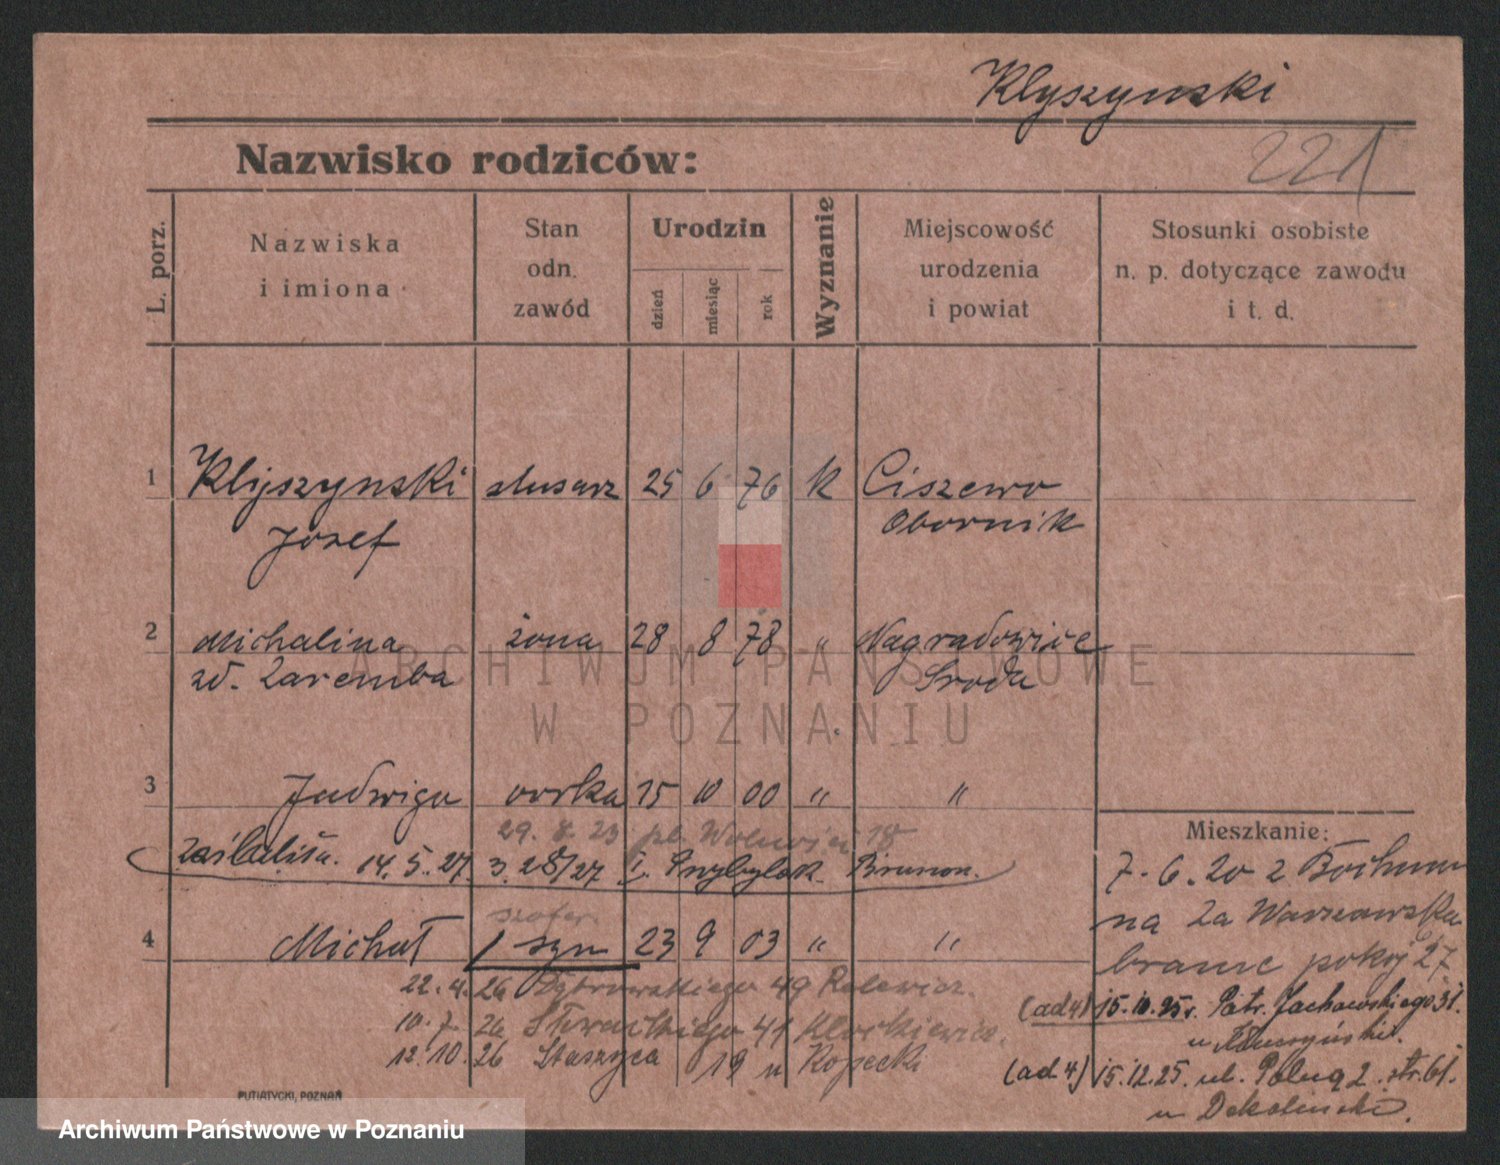 Klyszynski
221
Nazwisko rodziców:
L. porz.
Nazwiska
i imiona
Stan
odn.
zawód
Urodzin
dzień
miesiąc
rok
Wyznanie
Miejscowość
urodzenia
i powiat
Stosunki osobiste
n. p. dotyczące zawodu
i t. d.
1 Klyszynski slusarz 25 6 76 k Ciszewo
Jozef Obornik
2 Michalina żona 28 8 78 " Nagradowice
zd. Zaremba Sroda
3 Jadwiga corka 15 10 00 " "
29. 8. 23 pl. Wolności 18
zaślubiła. 14. 5. 27. 3. 28/27 Przybylak Brunon.
szofer.
4 Michał 1 syn 23 9 03 " "
22. 4. 26 Dąbrowskiego 49 Ralewicz.
10. 7. 26 41
12. 10. 26 Staszyca 19 u Kopecki
Mieszkanie:
7. 6. 20 z Bochum
na Za Warszawską
bramę pokój 27
(ad 4) 15. 10. 25 r. Patr. Jackowskiego 31.
u
(ad 4) 15. 12. 25. ul. 2. str. 61.
u
PUTIATYCKI, POZNAŃ
ARCHIWUM PAŃSTWOWE
W POZNANIU
Archiwum Państwowe w Poznaniu